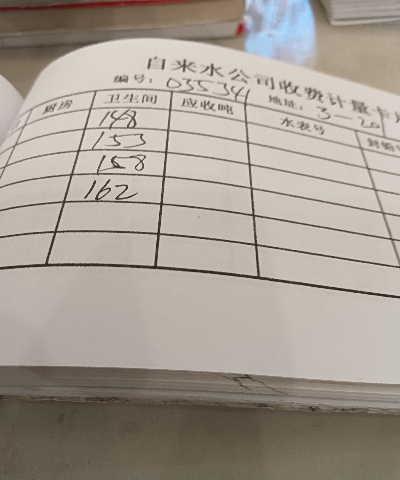 自来水公司收费计量卡
编号: 035341 地址: 3-201
厨房 卫生间 应收吨 水表号
148
153
158
162